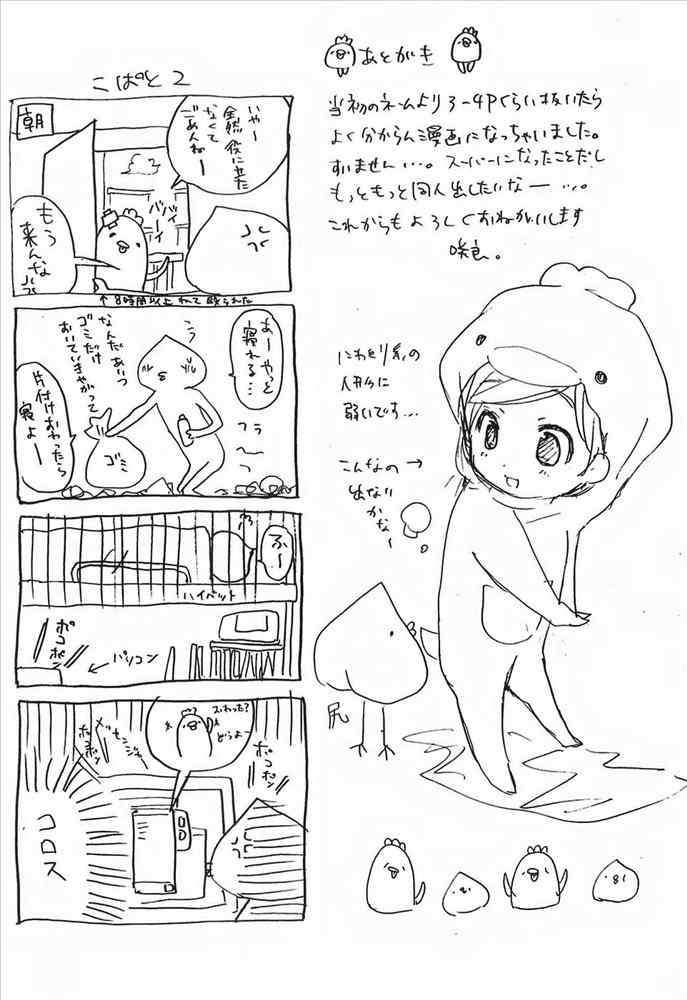 あとがき
当初のネームより3-4Pくらい抜いたら
よく分からん漫画になっちゃいました。
すいません…。スーパーになったことだし
もっともっと同人出したいなー…。
これからもよろしくおねがいします
にわとり系の
人外に
弱いです…
こんなの→
出ない
かなー
尻
こぱと2
朝
いやー
全然役に立た
なくて
ごめんねー
バイ
バーイ
もう
来んな
↑8時間以上ねて怒られた
あーやっと
寝れる…
う
なんだあいつ
ゴミだけ
おいていきやがって
フラ
〜
っ
ゴミ
片付けおわったら
寝よー
ふー
ハイベット
ポコポン
←パソコン
おわった?
どうよー
メッセンジャー
ポコポン
ポコポン
コロス